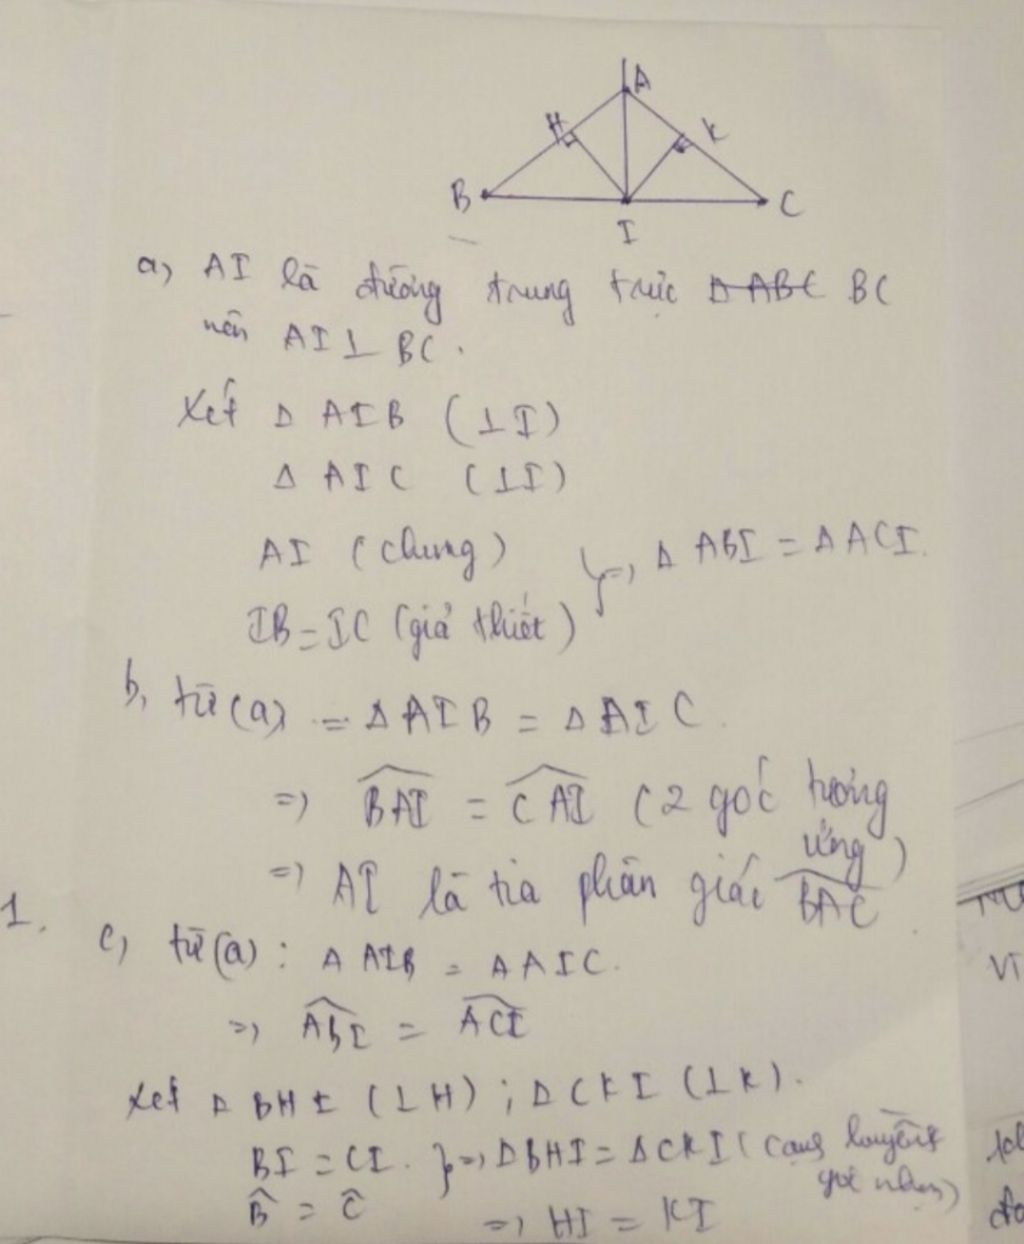 A
H
K
B
C
I
a, AI là đường trung trực Δ ABC BC
nên AI ⊥ BC.
Xét Δ AIB (⊥ I)
Δ AIC (⊥ I)
AI (chung)
} => Δ ABI = Δ ACI.
IB = IC (giả thiết)
b, từ (a) = Δ AIB = Δ AIC.
=> BAI = CAI (2 góc tương
ứng)
=> AI là tia phân giác BAC
1.
c, từ (a): Δ AIB = Δ AIC.
=> ABI = ACI
Xét Δ BHI (⊥ H); Δ CKI (⊥ K).
BI = CI. } => Δ BHI = Δ CKI (cạnh huyền
góc nhọn)
B = C
=> HI = KI